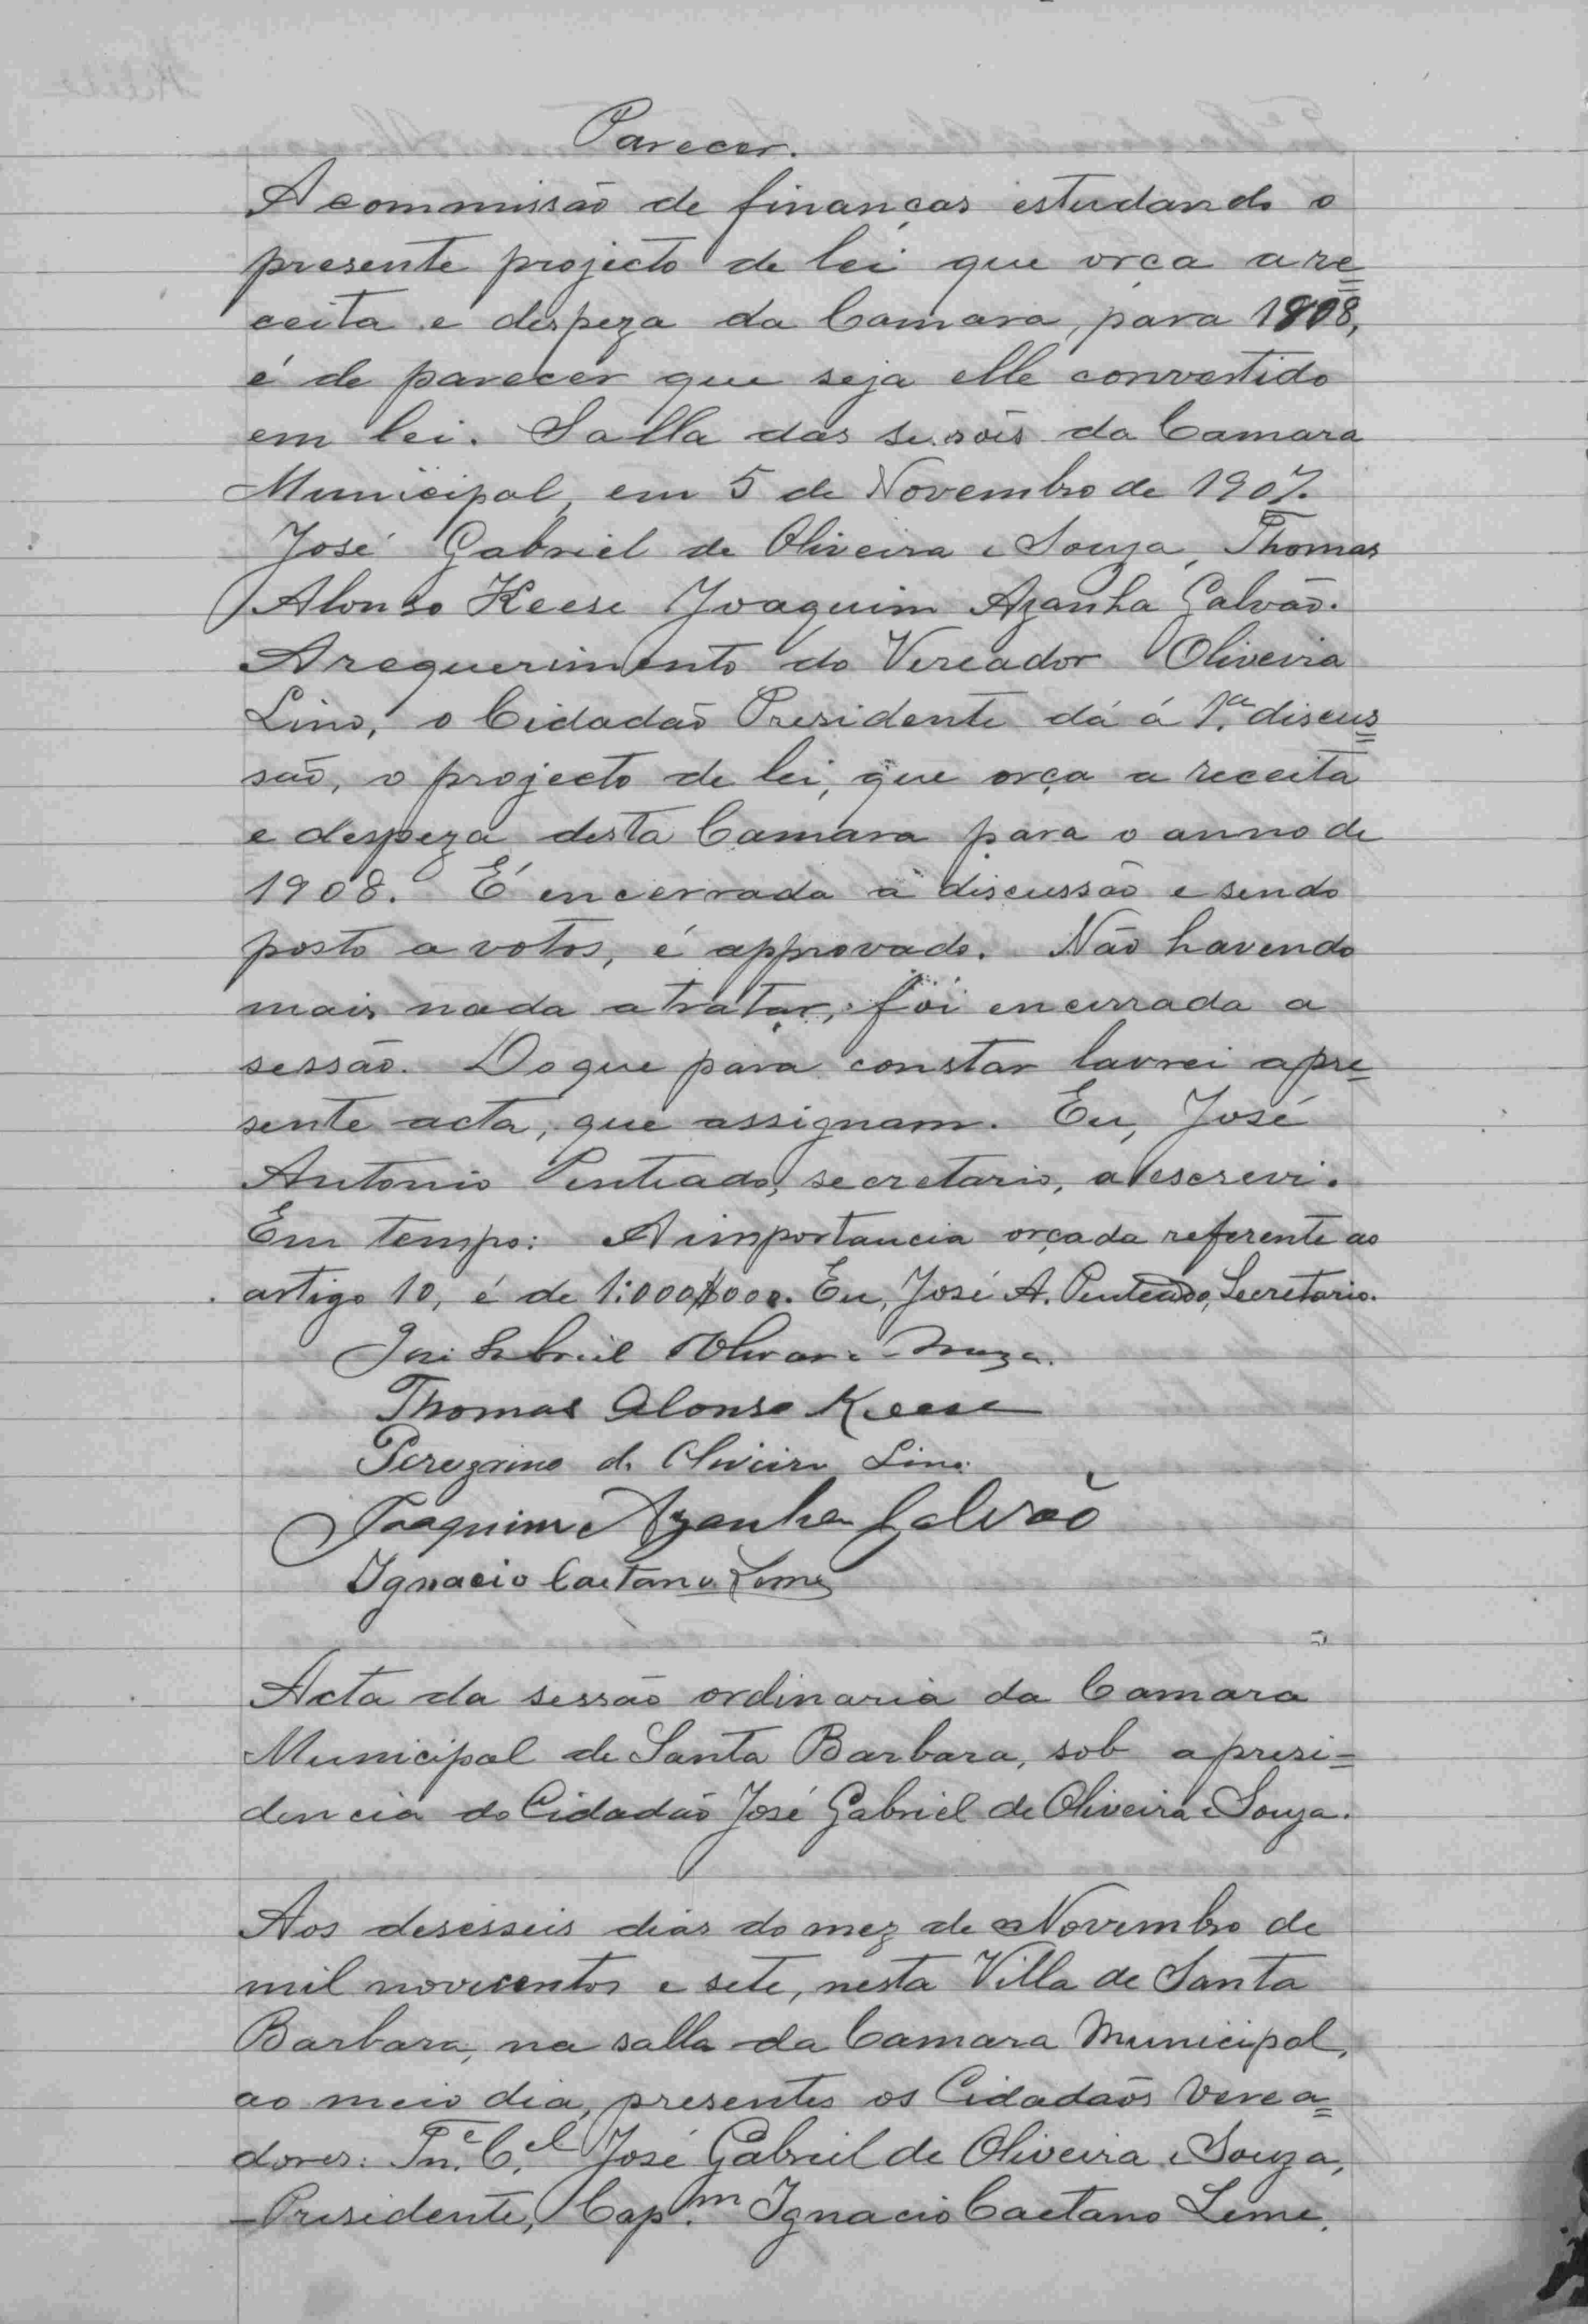 Parecer.
A commissão de finanças estudando o
presente projecto de lei que orça a re=
ceita e despeza da Camara, para 1908,
é de parecer que seja elle convertido
em lei. Salla das sessões da Camara
Municipal, em 5 de Novembro de 1907.
José Gabriel de Oliveira e Souza, Thomas
Alonso Keese Joaquim Azanha Galvão.
A requerimento do Vereador Oliveira
Lino, o Cidadão Presidente dá á 1.ª discus=
são, o projecto de lei, que orça a receita
e despeza desta Camara para o anno de
1908. É encerrada a discussão e sendo
posto a votos, é approvado. Não havendo
mais nada a tratar, foi encerrada a
sessão. Do que para constar lavrei a pre=
sente acta, que assignam. Eu, José
Antonio Penteado, secretario, a escrevi.
Em tempo: A importancia orçada referente ao
artigo 10, é de 1:000$000. Eu, José A. Penteado, Secretario.
José Gabriel Oliveira e Souza.
Thomas Alonso Keese
Peregrino de Oliveira Lino
Joaquim Azanha Galvão
Ignacio Caetano Leme
Acta da sessão ordinaria da Camara
Municipal de Santa Barbara, sob a presi=
dencia do Cidadão José Gabriel de Oliveira e Souza.
Aos desesseis dias do mez de Novembro de
mil novecentos e sete, nesta Villa de Santa
Barbara, na salla da Camara Municipal,
ao meio dia, presentes os Cidadãos Verea=
dores: Tn.e C.el José Gabriel de Oliveira e Souza,
Presidente, Cap.m Ignacio Caetano Leme,